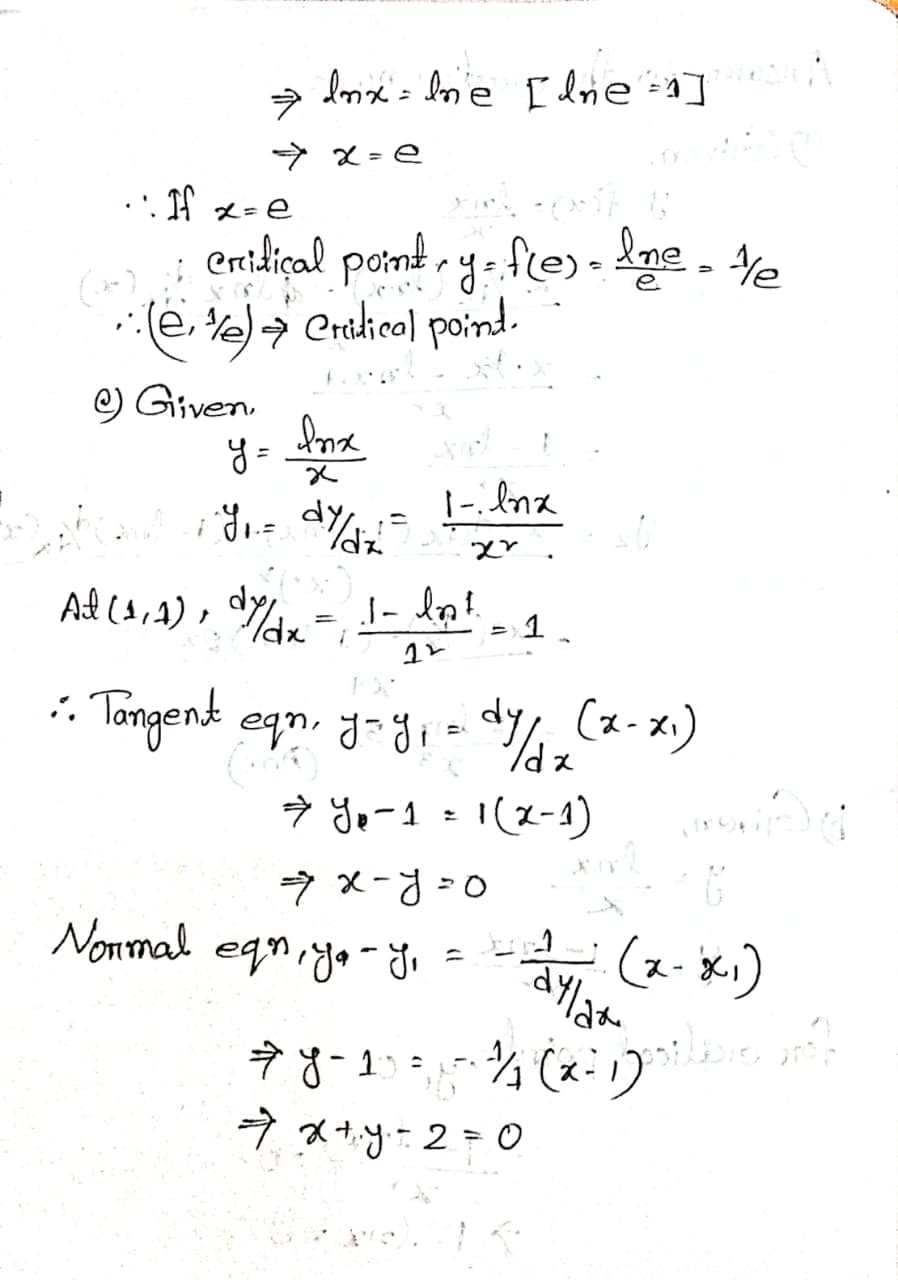 ⇒ lnx = lne [lne = 1]
⇒ x = e
∴ If x = e
critical point, y = f(e) = lne/e = 1/e
∴ (e, 1/e) ⇒ Critical point.
c) Given,
y = lnx/x
y₁ = dy/dx = 1 - lnx/x²
At (1,1), dy/dx = 1 - ln1/1² = 1
∴ Tangent eqn, y - y₁ = dy/dx (x - x₁)
⇒ y - 1 = 1(x - 1)
⇒ x - y = 0
Normal eqn, y - y₁ = - 1/dy/dx (x - x₁)
⇒ y - 1 = - 1/1 (x - 1)
⇒ x + y - 2 = 0